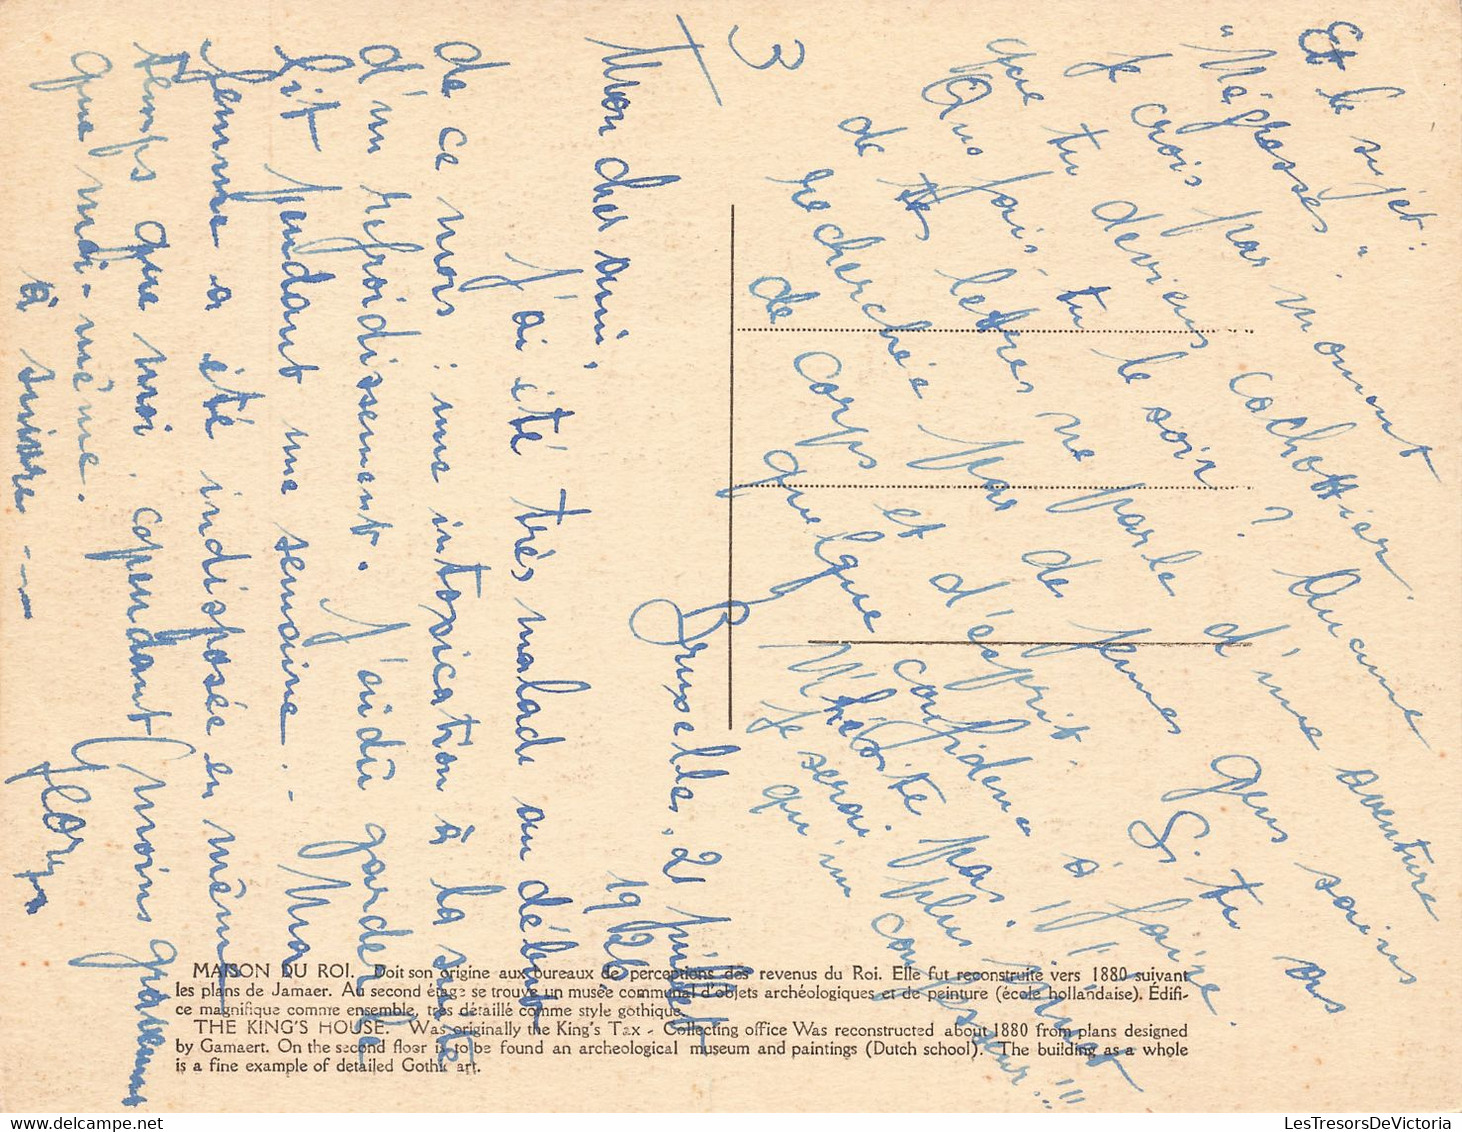 3
Bruxelles, 21 juillet
1926
Mon cher ami,
J'ai été très malade au début
de ce mois : une intoxication à la suite
d'un refroidissement. J'ai dû garder le
lit pendant une semaine. Ma
femme a été indisposée en même
temps que moi, cependant moins gravement
que moi-même.
à suivre ---
Et le sujet :
"Négresses".
Je crois par moment
que tu deviens cachottier.
Que fais-tu le soir ? Aucune
de tes lettres ne parle d'une aventure
recherchée par de jeunes gens sains
de corps et d'esprit. Si tu as
quelque confidence à faire,
n'hésite pas plus
Je serai
qu'un confesseur !!!
MAISON DU ROI. Doit son origine aux bureaux de perceptions des revenus du Roi. Elle fut reconstruite vers 1880 suivant
les plans de Jamaer. Au second étage se trouve un musée communal d'objets archéologiques et de peinture (école hollandaise). Édifi-
ce magnifique comme ensemble, très détaillé comme style gothique.
THE KING'S HOUSE. Was originally the King's Tax - Collecting office Was reconstructed about 1880 from plans designed
by Gamaert. On the second floor is to be found an archeological museum and paintings (Dutch school). The building as a whole
is a fine example of detailed Gothic art.
LesTresorsDeVictoria.com